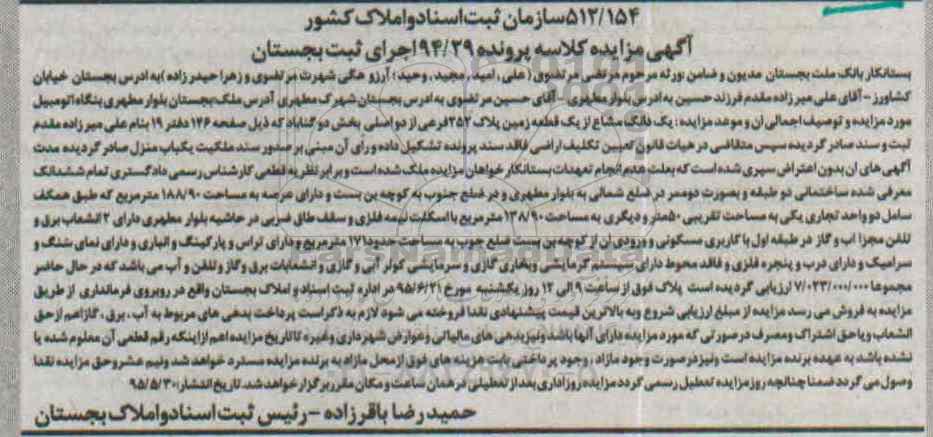 ۵۱۲/۱۵۴سازمان ثبت اسناد و املاک کشور
آگهی مزایده کلاسه پرونده ۹۴/۲۹ اجرای ثبت بجستان
بستانکار بانک ملت بجستان مدیون و ضامن :ورثه مرحوم مرتضی مرتضوی (علی , امید , مجید , وحید ؛ آرزو همگی شهرت مرتضوی و زهرا حیدرزاده )به ادرس بجستان خیابان
کشاورز - آقای علی میرزاده مقدم فرزند حسین به ادرس بلوار مطهری - آقای حسین مرتضوی به ادرس بجستان شهرک مطهری آدرس ملک:بجستان بلوار مطهری بنگاه اتومبیل
مورد مزایده و توصیف اجمالی ان و موعد مزایده : یک دانگ مشاع از یک قطعه زمین پلاک ۲۵۲ فرعی از دو اصلی بخش دو گناباد که ذیل صفحه ۱۲۶ دفتر ۱۹ بنام علی میرزاده مقدم
ثبت و سند صادر گردیده سپس متقاضی در هیات قانون تعیین تکلیف اراضی فاقد سند پرونده تشکیل داده و رای آن مبنی بر صدور سند ملکیت یکباب منزل صادر گردیده مدت
آگهی های ان بدون اعتراض سپری شده است که بعلت عدم انجام تعهدات بستانکار خواهان مزایده ملک شده است و برابر نظریه قطعی کارشناس رسمی دادگستری تمام ششدانگ
معرفی شده ساختمانی دو طبقه و بصورت دوممر در ضلع شمالی به بلوار مطهری و در ضلع جنوب به کوچه بن بست و دارای عرصه به مساحت ۱۸۸/۹۰ مترمربع که طبق همکف
شامل دو واحد تجاری یکی به مساحت تقریبی ۵۰متر و دیگری به مساحت ۱۳۸/۹۰ مترمربع با اسکلت نیمه فلزی و سقف طاق ضربی در حاشیه بلوار مطهری دارای ۲ انشعاب برق و
تلفن مجزا اب و گاز در طبقه اول با کاربری مسکونی و ورودی ان از کوچه بن بست ضلع جوب به مساحت حدود۱۷۱ مترمربع و دارای تراس و پارکینگ و انباری و دارای نمای سنگ و
سرامیک و دارای درب و پنجره فلزی و فاقد محوط دارای سیستم گرمایشی وبخاری گازی و سرمایشی کولر آبی و گازی و انشعابات برق وگاز وتلفن و آب می باشد که در حال حاضر
مجموعا ۷/۰۲۳/۰۰۰/۰۰۰ ارزیابی گردیده است پلاک فوق از ساعت ۹ الی ۱۲ روز یکشنبه مورخ ۹۵/۶/۲۱ در اداره ثبت اسناد و املاک بجستان واقع در روبروی فرمانداری از طریق
مزایده به فروش می رسد مزایده از مبلغ ارزیابی شروع وبه بالاترین قیمت پیشنهادی نقدا فروخته می شود لازم به ذکراست پرداخت بدهی های مربوط به آب , برق , گاز اعم از حق
انشعاب ویا حق اشتراک ومصرف در صورتی که مورد مزایده دارای آنها باشد ونیز بدهی های مالیاتی وعوارض شهرداری وغیره تا تاریخ مزایده اعم از اینکه رقم قطعی آن معلوم شده یا
نشده باشد به عهده برنده مزایده است ونیز در صورت وجود مازاد , وجود پرداختی بابت هزینه های فوق از محل مازاد به برنده مزایده مسترد خواهد شد ونیم عشر وحق مزایده نقدا
وصول می گردد ضمنا چنانچه روز مزایده تعطیل رسمی گردد مزایده روز اداری بعد از تعطیلی در همان ساعت و مکان مقرر برگزار خواهد شد. تاریخ انتشار:۹۵/۵/۳۰
حمیدرضا باقرزاده -رئیس ثبت اسناد و املاک بجستان